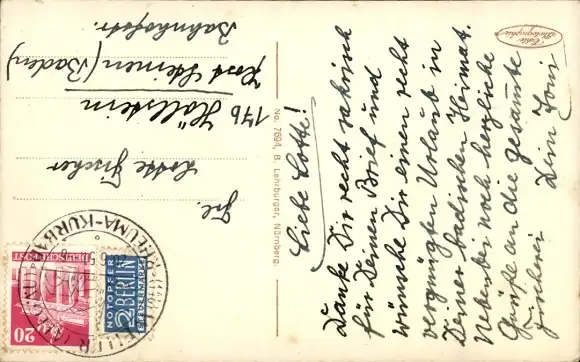 Liebe Lotte!
Danke Dir recht
für Deinen Brief und
wünsche Dir einen recht
vergnügten Urlaub in
Deiner Badischen Heimat.
Nebenbei noch herzliche
Grüße an die gesamte
Fischerei
Dein Toni
Echte
Photographie
No. 7694, B. Lehrburger, Nürnberg.
Frl.
Lotte Fischer
17b Höllstein
Post Steinen (Baden)
Bahnhofstr.
DEUTSCHE POST
20
NOTOPFER
2 BERLIN
STEUERMARKE
RHEUMA-KURBAD